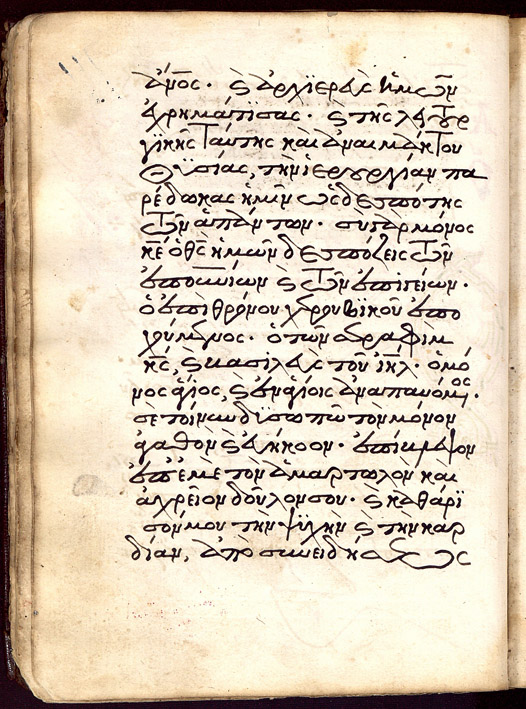 ἄν̅ος· ϛ ἀρχϊερεὺς ἡμῶν
ἐχρημάτϊσας· ϛ τῆς λειτουρ
γϊκῆς ταύτης καὶ ἀναιμάκτου
θϋσίας, τὴν ἱερουργίαν πα
ρέδωκας ἡμῖν ὡς δεσπότης
τῶν ἁπάντων· σὺ γὰρ μόνος
κ̅ε ὁ θ̅ς ἡμῶν δεσπόζεις τῶν
ἐπου̅νίων ϛ τῶν ἐπιγείων·
ὁ ἐπὶ θρόνου χερουβικοῦ ἐπο
χούμενος· ὁ τῶν σεραφὶμ
κ̅ς, ϛ βασιλεὺς τοῦ ἰη̅λ· ὁ μό
νος ἅγιος, ϛ ἐν ἁγίοις ἀναπαυόμενος·
σὲ τοίνυν δϊσωπῶ τὸν μόνον
ἀγαθὸν ϛ εὐήκοον· ἐπίβλεψον
ἐπ' ἐμὲ τὸν ἁμαρτωλὸν καὶ
ἀχρεῖον δοῦλον σου· ϛ καθάρϊ
σον μου τὴν ψϋχὴν ϛ τὴν καρ
δίαν, ἀπὸ συνειδήσεως